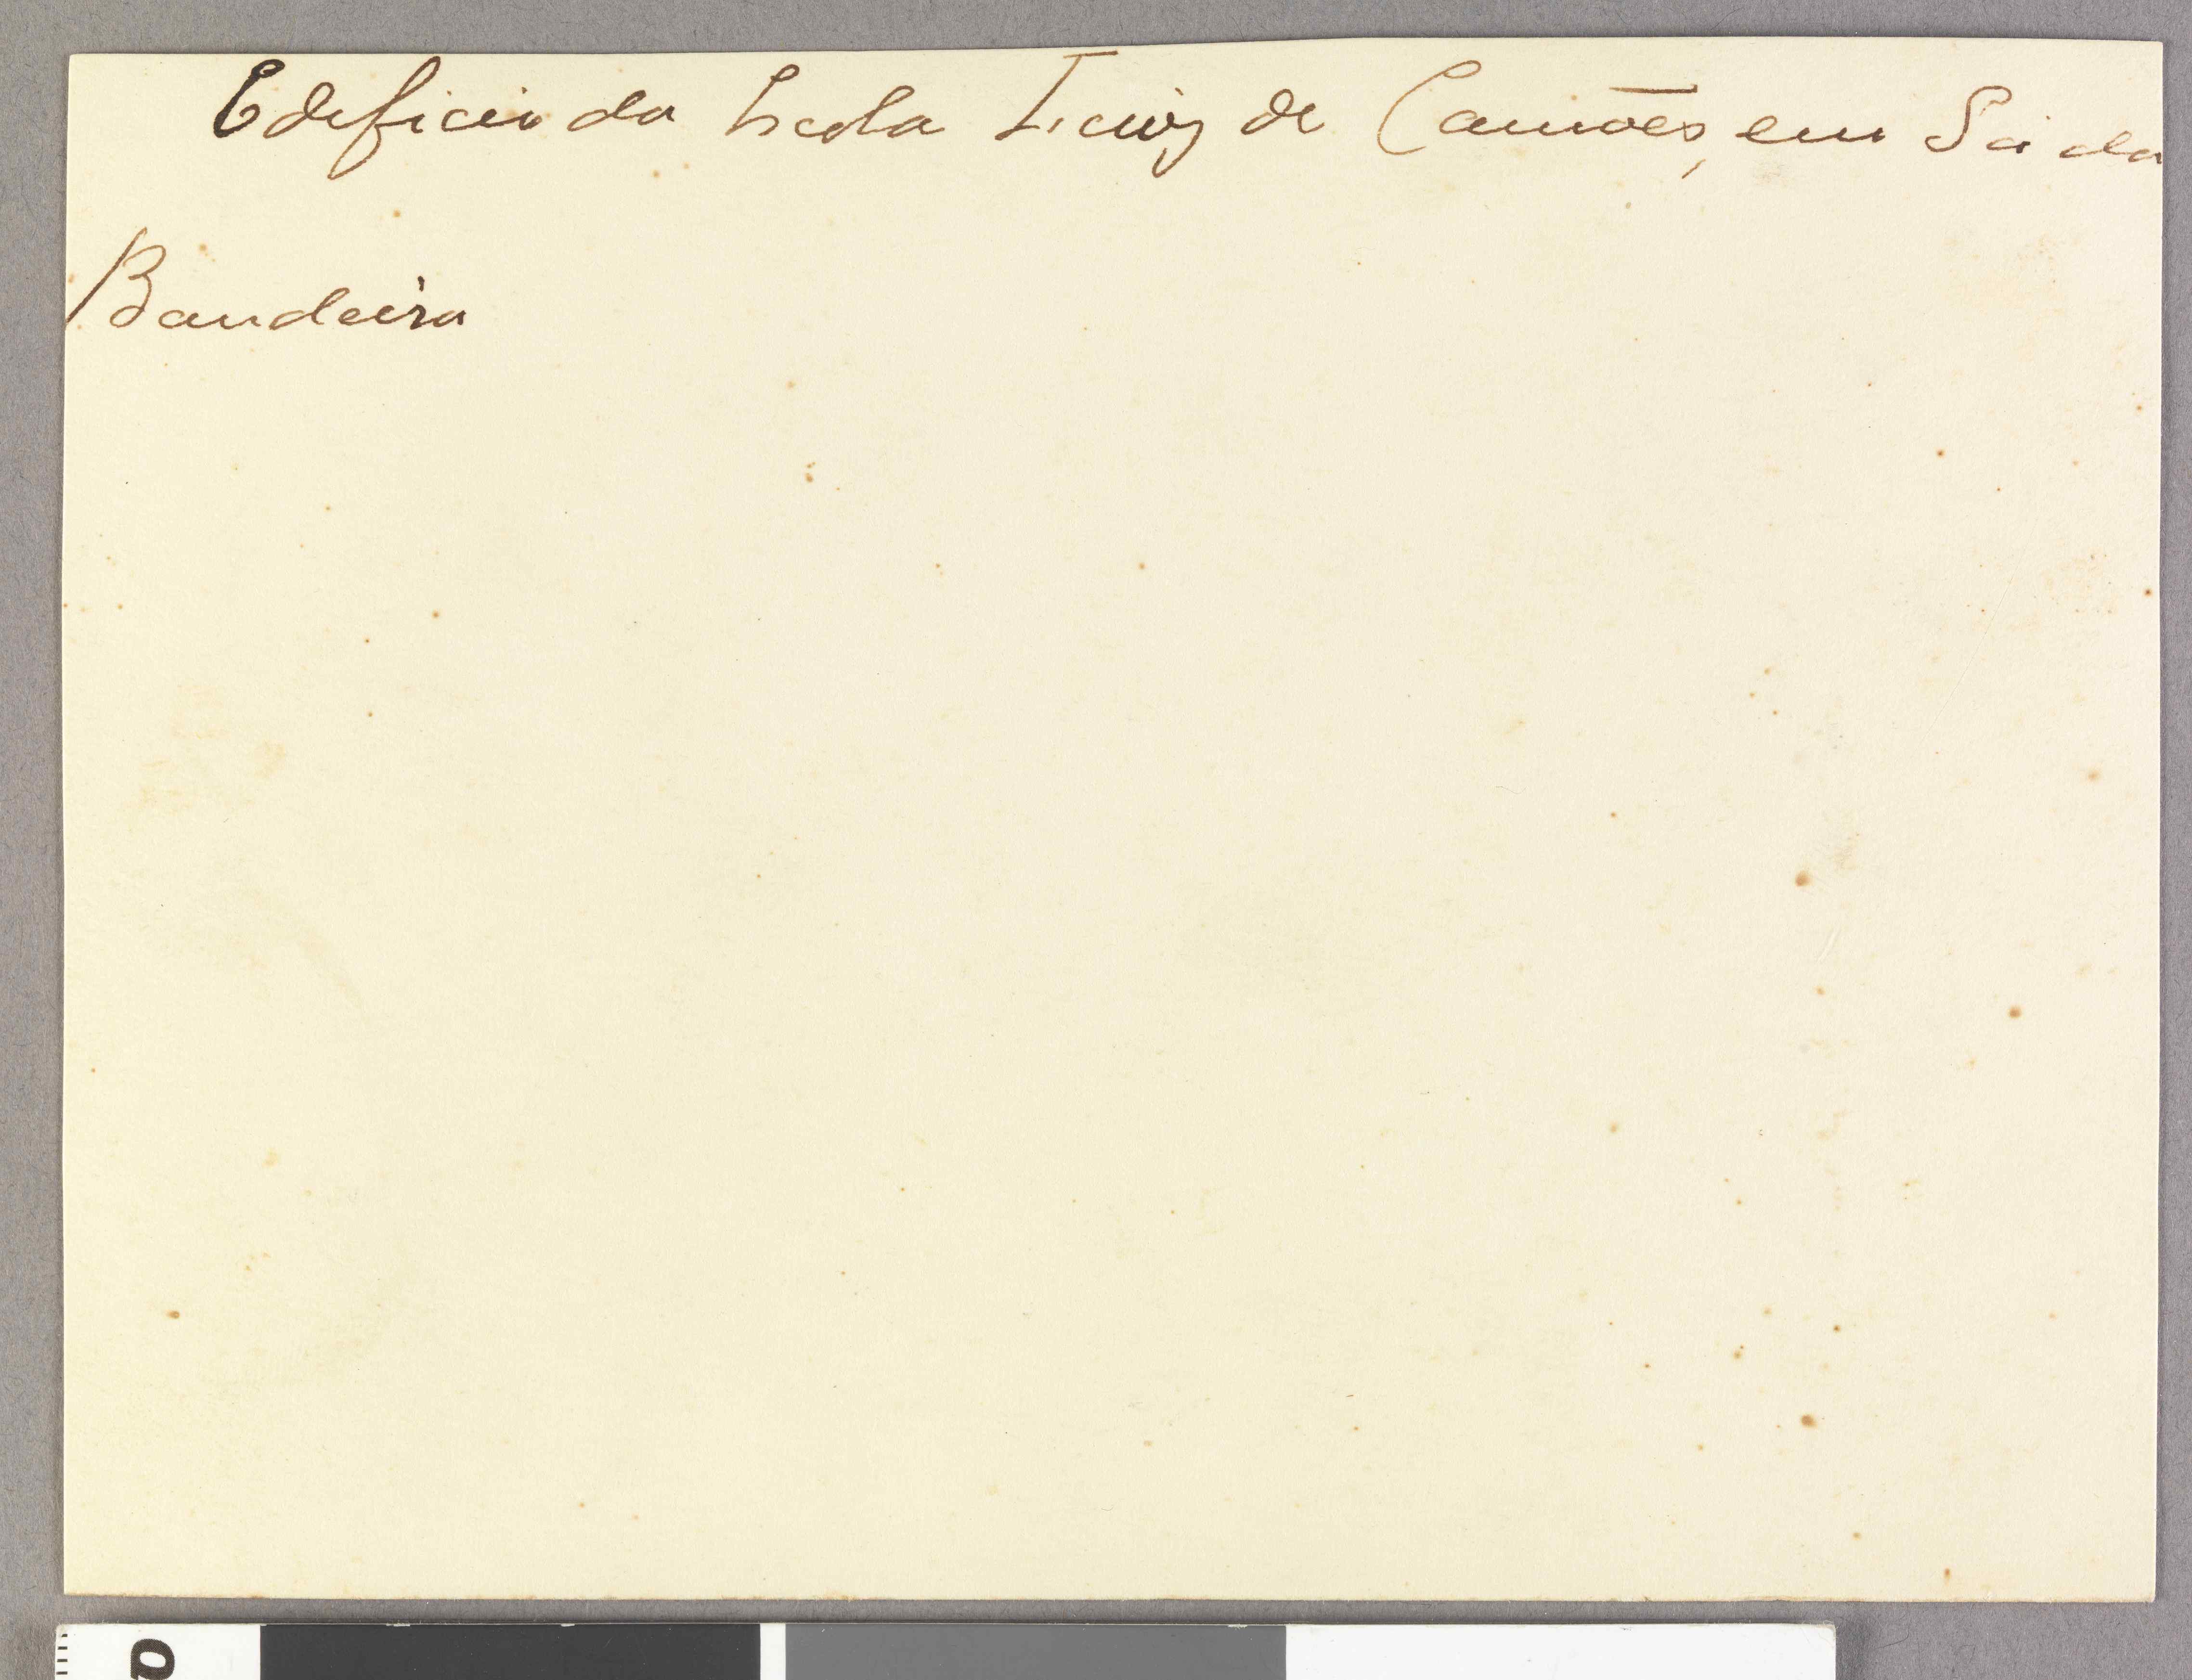 Edificio da Escola Luiz de Camões, em Sá da
Bandeira